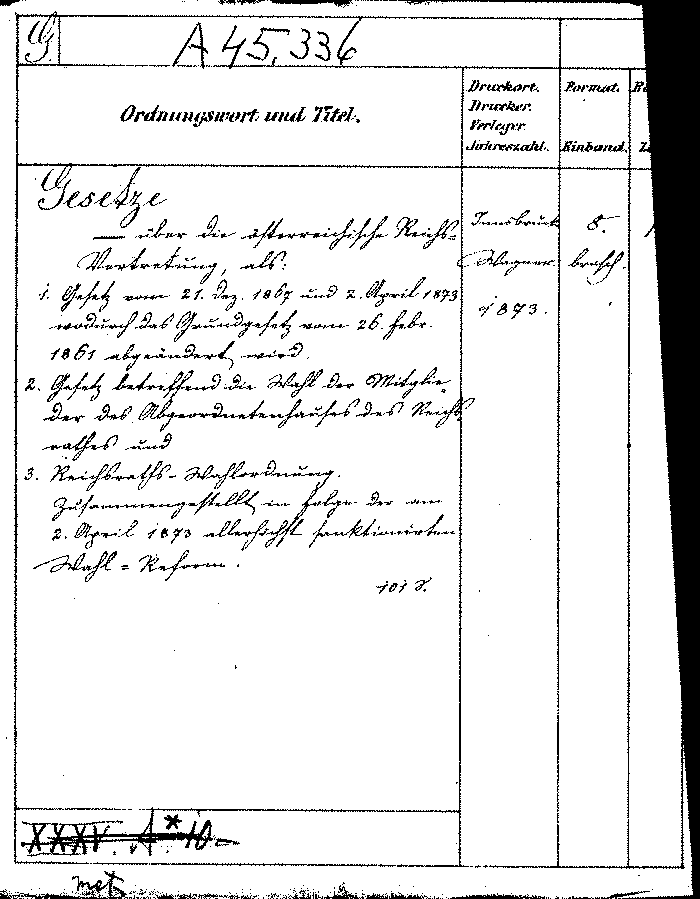 G.
A 45.336
Ordnungswort und Titel.
Druckort.
Drucker.
Verleger
Jahreszahl.
Format.
Einband.
Gesetze
— über die österreichische Reichs-
Vertretung, als:
1. Gesetz vom 21. Dez. 1867 und 2. April 1873
wodurch das Grundgesetz vom 26. Febr.
1861 abgeändert wird.
2. Gesetz betreffend die Wahl der Mitglie-
der des Abgeordnetenhauses des Reichs
rathes und
3. Reichsraths-Wahlordnung.
Zusammengestellt in Folge der am
2. April 1873 allerhöchst sanktionirten
Wahl-Reform.
101 S.
Innsbruck
Wagner
1873.
8.
brosch.
XXXV. A* 10